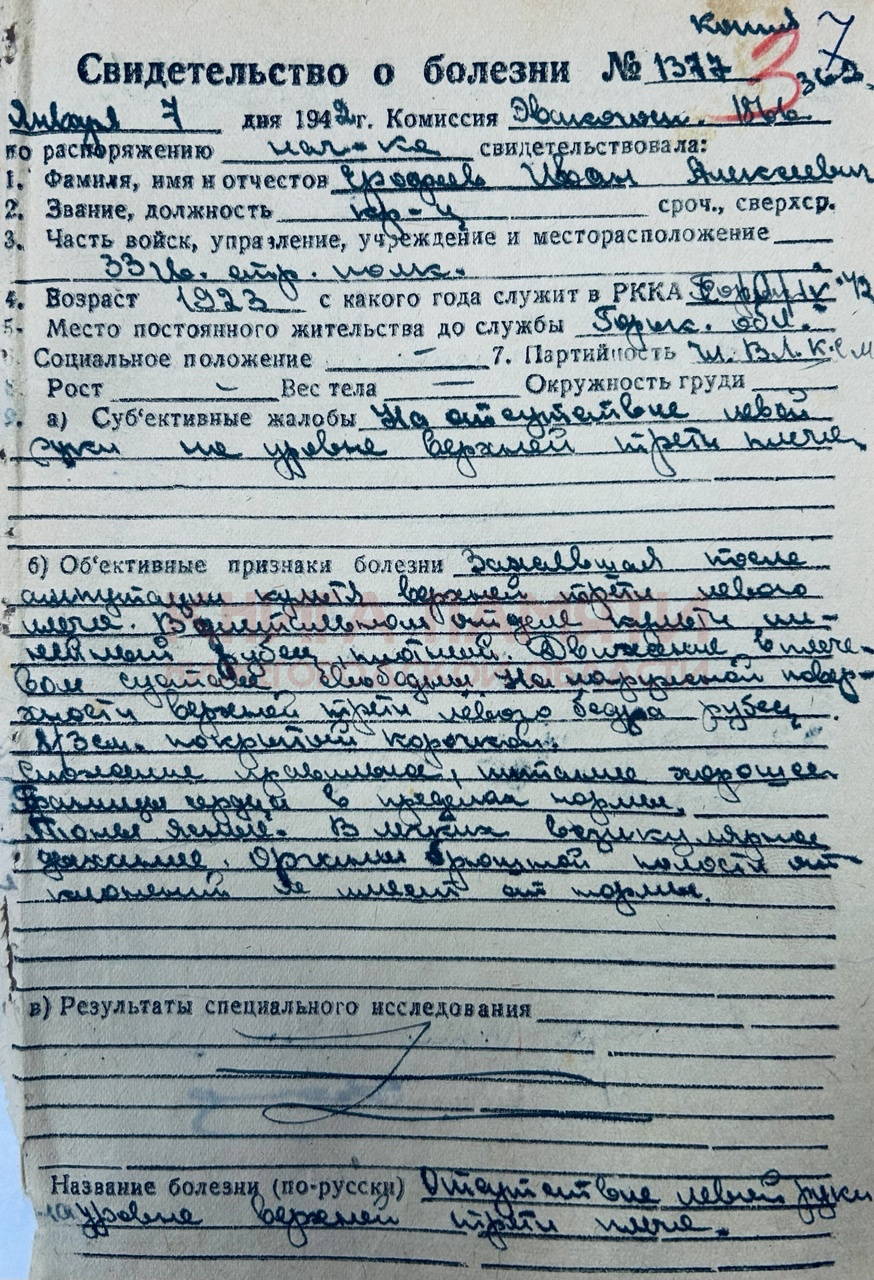 копия 7
Свидетельство о болезни № 1377 3
Января 7 дня 1942г. Комиссия Эвакогосп.
по распоряжению нач-ка свидетельствовала:
1. Фамиля, имя и отчестов Иван Алексеевич
2. Звание, должность кр-ц сроч., сверхср.
3. Часть войск, управление, учреждение и месторасположение
33 Гв. стр. полк.
4. Возраст 1923 с какого года служит в РККА
5. Место постоянного жительства до службы Горьк. обл.
Социальное положение — 7. Партийность чл. ВЛКСМ
Рост — Вес тела — Окружность груди
9. а) Суб'ективные жалобы На отсутствие левой
руки на уровне верхней трети плеча.
б) Об'ективные признаки болезни Зажившая после
ампутации культя верхней трети левого
плеча. В дистальном отделе культи ли-
нейный рубец, плотный. Движение в плече-
вом суставе свободны. На наружной повер-
хности верхней трети левого бедра рубец
см. покрытый корочкой.
Сложение правильное, питание хорошее
Границы сердца в пределах нормы,
Тоны ясные. В легких везикулярное
дыхание. Органы брюшной полости от-
клонений не имеет от нормы.
в) Результаты специального исследования
Название болезни (по-русски) Отсутствие левой руки
на уровне верхней трети плеча.